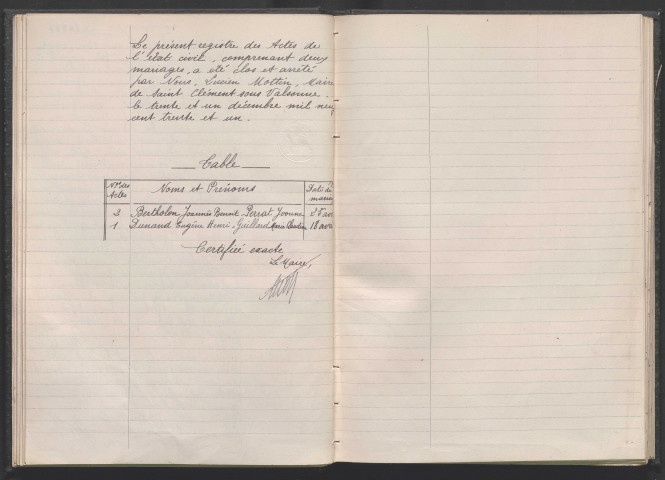 Le présent registre des Actes de
l'état civil, comprenant deux
mariages, a été clos et arrêté
par Nous, Lucien Mottin, Maire
de Saint Clément sous Valsonne.
le trente et un décembre mil neuf
cent trente et un.
Table
Nos des Actes Noms et Prénoms Date du
2 Bertholon Joannès Benoit - Perrat Yvonne 25 avr
1 Dunand Eugène Henri - Guillard Claudia 18 avr
Certifiée exacte
Le Maire,